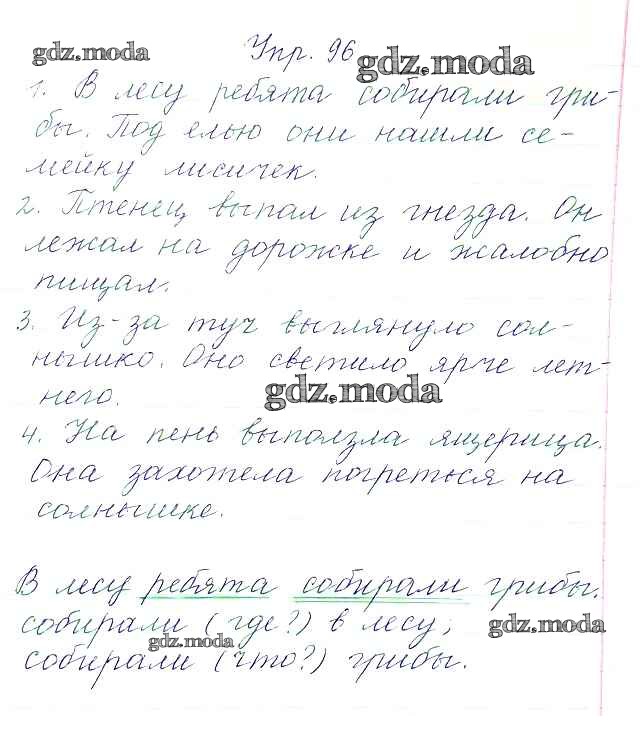 gdz.moda
Упр. 96
gdz.moda
1. В лесу ребята собирали гри-
бы. Под елью они нашли се-
мейку лисичек.
2. Птенец выпал из гнезда. Он
лежал на дорожке и жалобно
пищал.
3. Из-за туч выглянуло сол-
нышко. Оно светило ярче лет-
него.
gdz.moda
4. На пень выползла ящерица.
Она захотела погреться на
солнышке.
В лесу ребята собирали грибы.
собирали (где?) в лесу;
gdz.moda
gdz.moda
собирали (что?) грибы.